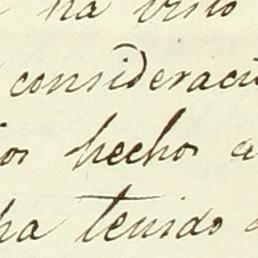 ha visto
consideraci
ios hechos a
ha tenido